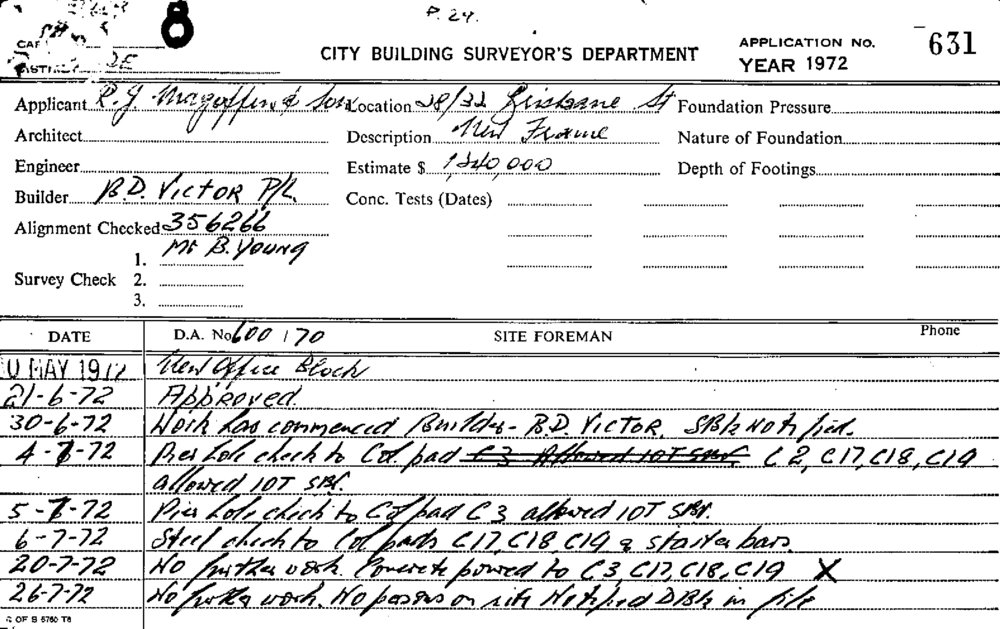 8
P. 24.
CITY BUILDING SURVEYOR'S DEPARTMENT
APPLICATION NO. 631
YEAR 1972
Applicant R.J Magoffin & Son Location 28/32 Brisbane St Foundation Pressure
Architect Description New Frame Nature of Foundation
Engineer Estimate $ 1,240,000 Depth of Footings
Builder B.D. VICTOR P/L. Conc. Tests (Dates)
Alignment Checked 356266
Mr B. Young
1.
Survey Check 2.
3.
DATE D.A. No 600 / 70 SITE FOREMAN Phone
MAY 1972 New Office Block
21-6-72 Approved.
30-6-72 Work has commenced Builder - B.D. VICTOR. Notified.
4-7-72 Pier hole check to Col. pad C3 Allowed 10T C2, C17, C18, C19
allowed 10T
5-7-72 Pier hole check to Col pad C3 allowed 10T
6-7-72 Steel check to Col pads C17, C18, C19 & starter bars.
20-7-72 No further work. Concrete poured to C3, C17, C18, C19 X
26-7-72 No further work. No persons on site Notified in file
OF B 5760 T8